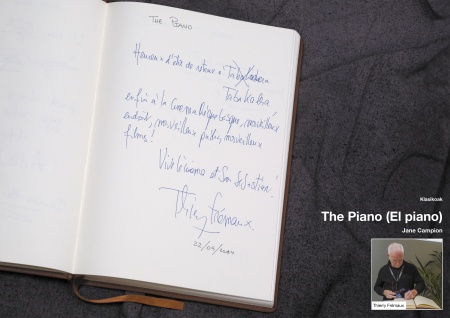 THE PIANO
Heureux d'être de retour à
Tabakalera
enfin à la Cinémathèque basque, merveilleux
endroit, merveilleux public, merveilleux
films !
Vive le cinéma et
Thierry Frémaux.
22/03/2024
Klasikoak
The Piano (El piano)
Jane Campion
Thierry Frémaux